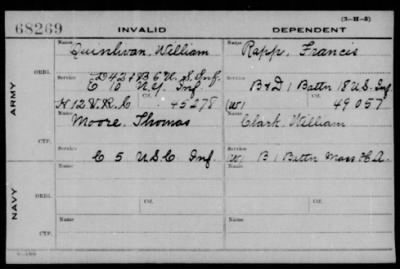 (3-H-3)
68269 INVALID DEPENDENT
Name Name
Quinlivan, William Rapp, Francis
ARMY
ORIG.
Service Service
D 42 & B 6 U.S. Inf. B & D 1 Battn 18 U.S. Inf
C 10 N.Y. Inf
Ctf. Ctf.
H 12 V.R.C. 45278 (W) 49057
Name Name
Moore, Thomas Clark, William
CTF.
Service Service
C 5 U.S.C. Inf. (W) B 1 Battn Mass H.A.
NAVY
Name Name
ORIG.
Service Ctf. Service Ctf.
Name Name
CTF.